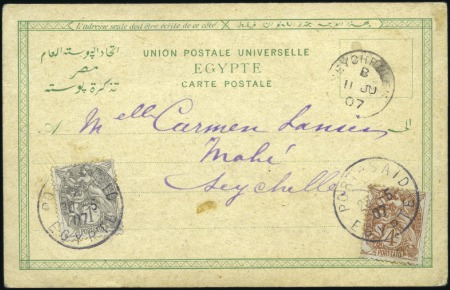 L'adresse seule doit être écrite de ce côté
UNION POSTALE UNIVERSELLE
EGYPTE
CARTE POSTALE
اتحاد البوستة العام
مصر
تذكرة بوستة
SEYCHELLES
B
11 JU
07
Melle Carmen
Mahé
Seychelles
PORT-SAID
07
EGYPTE
PORT-SAID
07
4